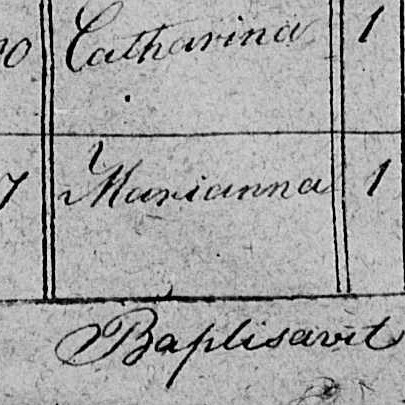 0 Catharina 1
7 Marianna 1
Baptisavit